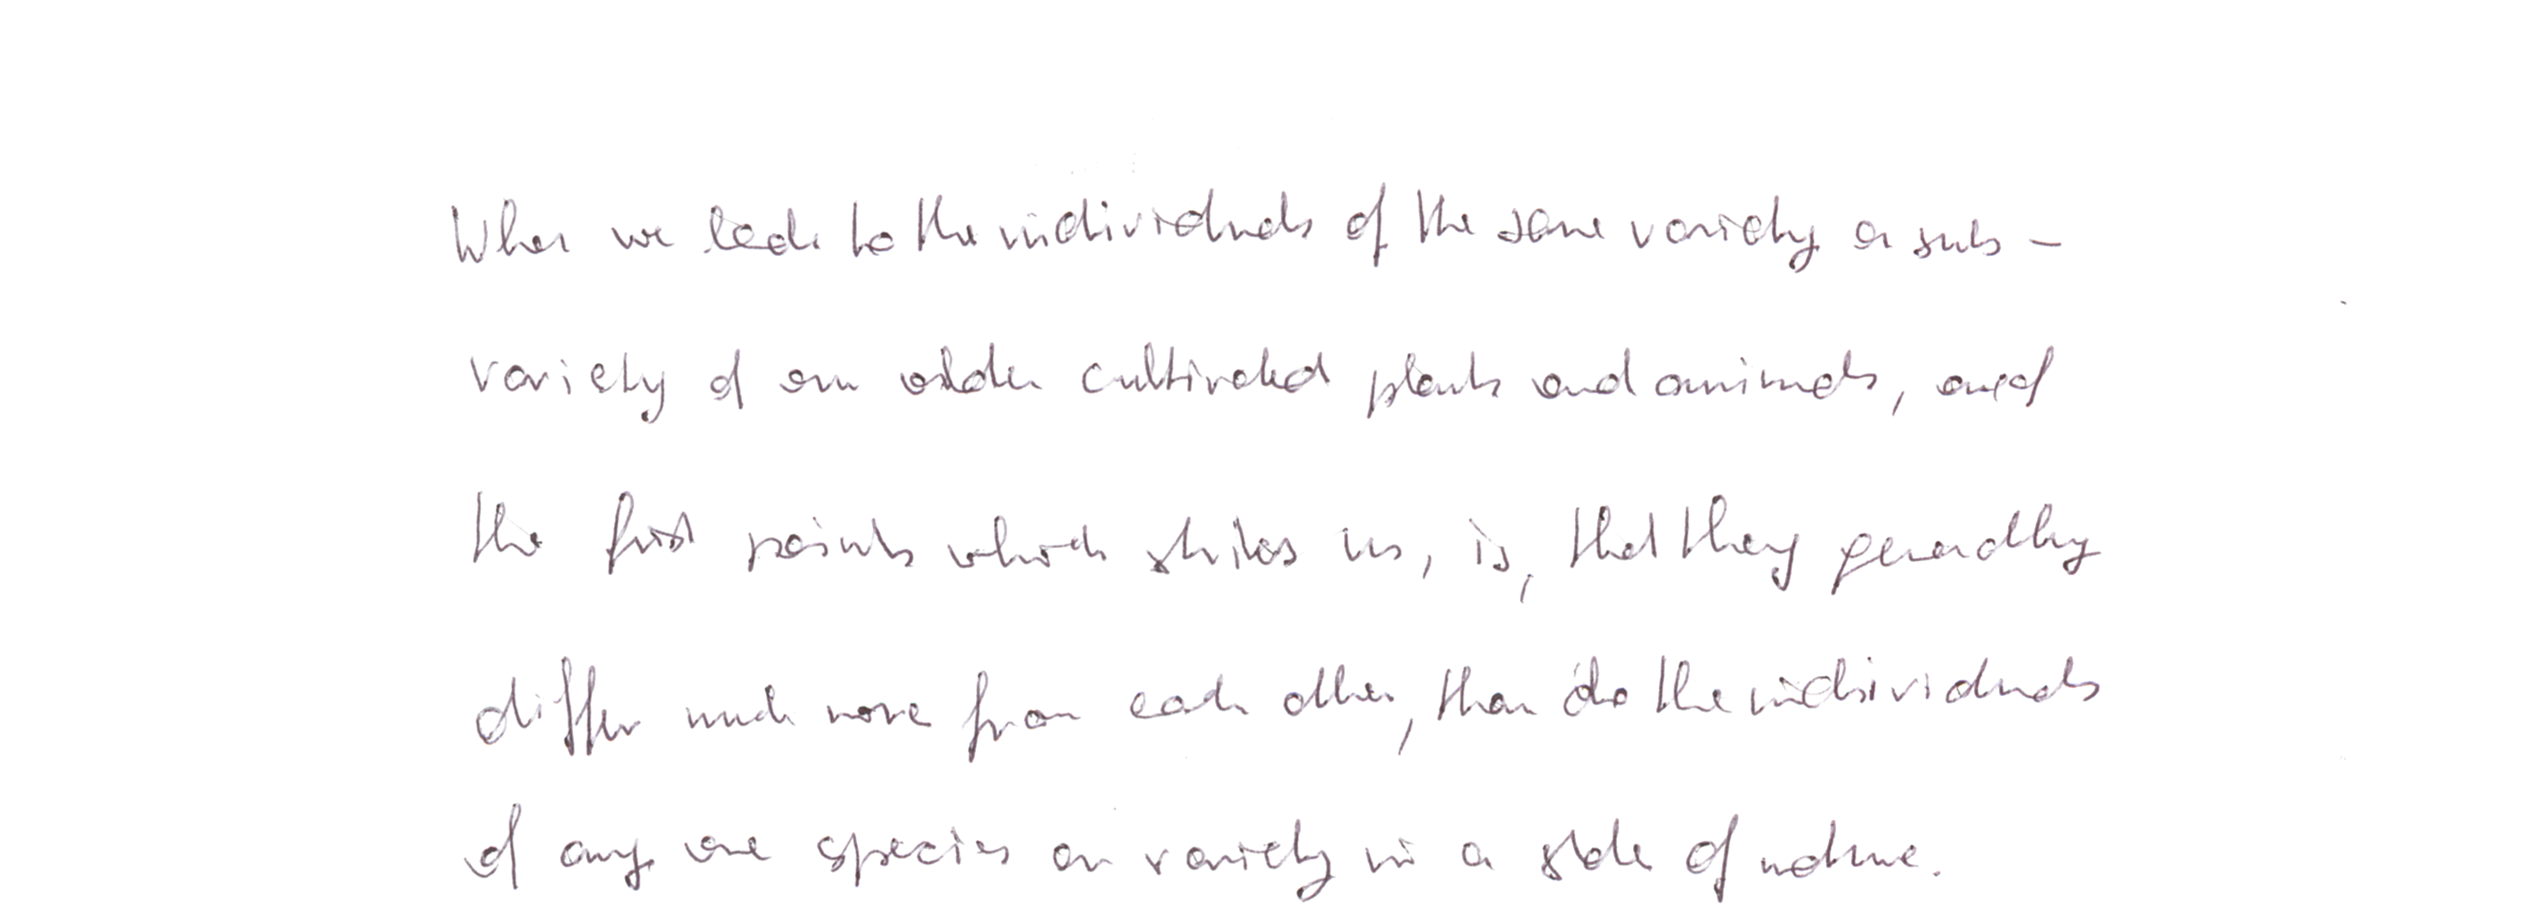 When we look to the individuals of the same variety or sub-
variety of our older cultivated plants and animals, one of
the first points which strikes us, is, that they generally
differ much more from each other, than do the individuals
of any one species or variety in a state of nature.